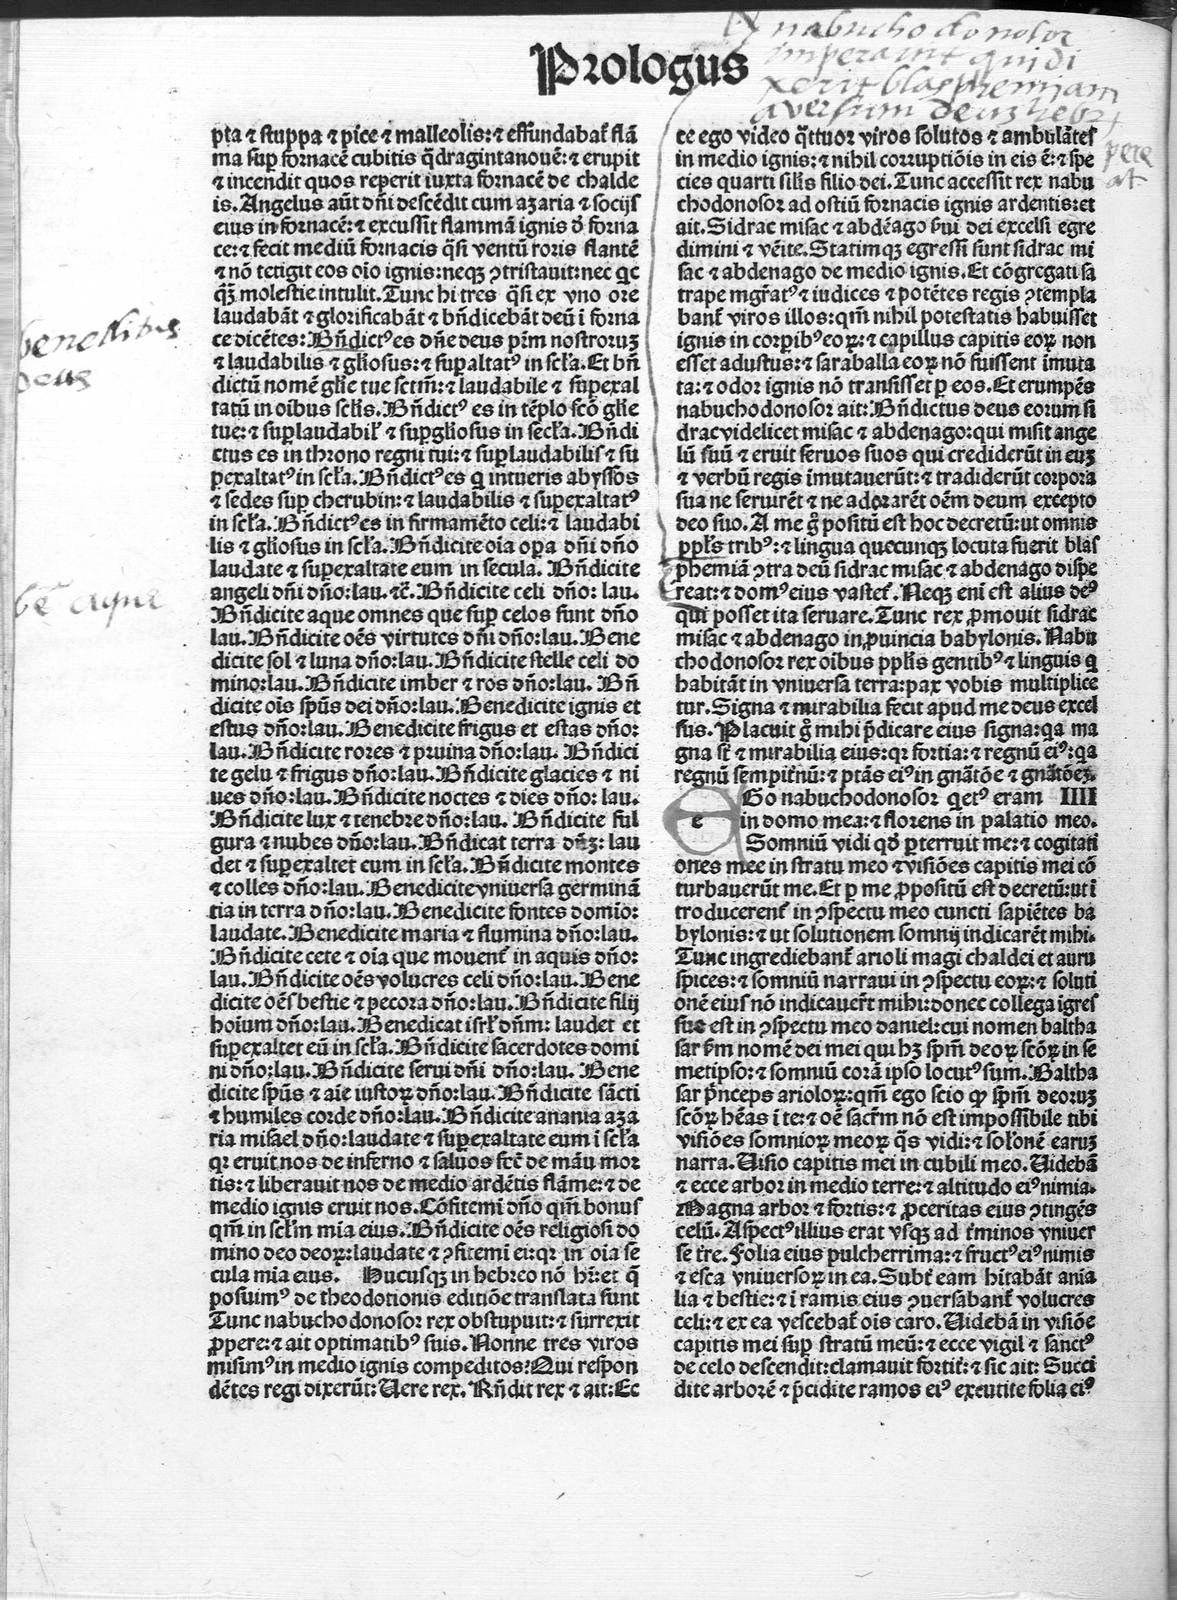 nabuchodonosor
imperavit qui di
xerit blasphemiam
aversum deuz hebr
pere
at
Prologus
benedictus
deus
bñ aque
pta ⁊ stuppa ⁊ pice ⁊ malleolis: ⁊ effundabat̃ flã
ma sup fornacẽ cubitis q̃dragintanouẽ: ⁊ erupit
⁊ incendit quos reperit iuxta fornacẽ de chalde
is. Angelus aũt dñi descẽdit cum azaria ⁊ socijs
eius in fornacẽ: ⁊ excussit flammã ignis ð forna
ce: ⁊ fecit mediũ fornacis q̃si ventũ roris flantẽ
⁊ nõ tetigit eos oĩo ignis: neqʒ ꝯtristauit: nec qc
q̃ʒ molestie intulit. Tunc hi tres q̃si ex vno ore
laudabãt ⁊ glorificabãt ⁊ bñdicebãt deũ ĩ forna
ce dicẽtes: Bñdictꝰ es dñe deus pr̃m nostroruʒ
⁊ laudabilis ⁊ gl̃iosus: ⁊ supaltatꝰ in scl̃a. Et bñ
dictũ nomẽ gl̃ie tue sctm̃: ⁊ laudabile ⁊ supexal
tatũ in oĩbus scl̃is. Bñdictꝰ es in tẽplo scõ gl̃ie
tue: ⁊ suplaudabil̃ ⁊ supgl̃iosus in secl̃a. Bñdi
ctus es in throno regni tui: ⁊ suplaudabilis ⁊ su
pexaltatꝰ in scl̃a. Bñdictꝰ es q intueris abyssos
⁊ sedes sup cherubin: ⁊ laudabilis ⁊ supexaltatꝰ
in scl̃a. Bñdictꝰ es in firmamẽto celi: ⁊ laudabi
lis ⁊ gl̃iosus in scl̃a. Bñdicite oĩa opa dñi dño
laudate ⁊ supexaltate eum in secula. Bñdicite
angeli dñi dño: lau. ⁊c̃. Bñdicite celi dño: lau.
Bñdicite aque omnes que sup celos sunt dño
lau. Bñdicite oẽs virtutes dñi dño: lau. Bene
dicite sol ⁊ luna dño: lau. Bñdicite stelle celi do
mino: lau. Bñdicite imber ⁊ ros dño: lau. Bñ
dicite oĩs spũs dei dño: lau. Benedicite ignis et
estus dño: lau. Benedicite frigus et estas dño:
lau. Bñdicite rores ⁊ pruina dño: lau. Bñdici
te gelu ⁊ frigus dño: lau. Bñdicite glacies ⁊ ni
ues dño: lau. Bñdicite noctes ⁊ dies dño: lau.
Bñdicite lux ⁊ tenebre dño: lau. Bñdicite ful
gura ⁊ nubes dño: lau. Bñdicat terra dñʒ: lau
det ⁊ supexaltet eum in scl̃a. Bñdicite montes
⁊ colles dño: lau. Benedicite vniuersa germinã
tia in terra dño: lau. Benedicite fontes domĩo:
laudate. Benedicite maria ⁊ flumina dño: lau.
Bñdicite cete ⁊ oĩa que mouent̃ in aquis dño:
lau. Bñdicite oẽs volucres celi dño: lau. Bene
dicite oẽs bestie ⁊ pecora dño: lau. Bñdicite filij
hoĩum dño: lau. Benedicat isrl̃ dñm: laudet et
supexaltet eũ in scl̃a. Bñdicite sacerdotes domi
ni dño: lau. Bñdicite serui dñi dño: lau. Bene
dicite spũs ⁊ aĩe iustoꝝ dño: lau. Bñdicite sãcti
⁊ humiles corde dño: lau. Bñdicite anania aza
ria misael dño: laudate ⁊ supexaltate eum ĩ scl̃a
qꝛ eruit nos de inferno ⁊ saluos fec̃ de mãu mor
tis: ⁊ liberauit nos de medio ardẽtis flãme: ⁊ de
medio ignis eruit nos. Cõfitemi dño qm̃ bonus
qm̃ in scl̃m mia eius. Bñdicite oẽs religiosi do
mino deo deoꝝ: laudate ⁊ ꝯfitemi ei: qꝛ in oĩa se
cula mia eius. Hucusqʒ in hebreo nõ hr̃: et q̃
posuimꝰ de theodotionis editiõe translata sunt
Tunc nabuchodonosor rex obstupuit: ⁊ surrexit
ꝓpere: ⁊ ait optimatibꝰ suis. Nonne tres viros
misimꝰ in medio ignis compeditos? Qui respon
dẽtes regi dixerũt: Uere rex. Rñdit rex ⁊ ait: Ec
ce ego video q̃ttuor viros solutos ⁊ ambulãtes
in medio ignis: ⁊ nihil corruptiõis in eis ẽ: ⁊ spe
cies quarti sil̃is filio dei. Tunc accessit rex nabu
chodonosor ad ostiũ fornacis ignis ardentis: et
ait. Sidrac misac ⁊ abdẽago ẜui dei excelsi egre
dimini ⁊ vẽite. Statimqʒ egressi sunt sidrac mi
sac ⁊ abdenago de medio ignis. Et cõgregati sa
trape mgr̃atꝰ ⁊ iudices ⁊ potẽtes regis ꝯtempla
bant̃ viros illos: qm̃ nihil potestatis habuisset
ignis in corpibꝰ eoꝝ: ⁊ capillus capitis eoꝝ non
esset adustus: ⁊ saraballa eoꝝ nõ fuissent imuta
ta: ⁊ odor ignis nõ transisset p eos. Et erumpẽs
nabuchodonosor ait: Bñdictus deus eorum si
drac videlicet misac ⁊ abdenago: qui misit ange
lũ suũ ⁊ eruit seruos suos qui crediderũt in euʒ
⁊ verbũ regis imutauerũt: ⁊ tradiderũt corpora
sua ne seruirẽt ⁊ ne adorarẽt oẽm deum excepto
deo suo. A me g̊ positũ est hoc decretũ: ut omnis
ppl̃s tribꝰ: ⁊ lingua quecunqʒ locuta fuerit blas
phemiã ꝯtra deũ sidrac misac ⁊ abdenago dispe
reat: ⁊ domꝰ eius vastet̃. Neqʒ eni est alius deꝰ
qui posset ita seruare. Tunc rex ꝓmouit sidrac
misac ⁊ abdenago in ꝓuincia babylonis. Nabu
chodonosor rex oĩbus ppl̃is gentibꝰ ⁊ linguis q
habitãt in vniuersa terra: pax vobis multiplice
tur. Signa ⁊ mirabilia fecit apud me deus excel
sus. Placuit g̊ mihi p̃dicare eius signa: qa ma
gna st̃ ⁊ mirabilia eius: qꝛ fortia: ⁊ regnũ eiꝰ: qa
regnũ sempit̃nũ: ⁊ ptãs eiꝰ in gnãtõe ⁊ gnãtõeʒ.
e Go nabuchodonosor qetꝰ eram IIII
in domo mea: ⁊ florens in palatio meo.
Somniũ vidi qð pterruit me: ⁊ cogitati
ones mee in stratu meo ⁊ visiões capitis mei cõ
turbauerũt me. Et p me ꝓpositũ est decretũ: ut ĩ
troducerent̃ in ꝯspectu meo cuncti sapiẽtes ba
bylonis: ⁊ ut solutionem somnij indicarẽt mihi.
Tunc ingrediebant̃ arioli magi chaldei et auru
spices: ⁊ somniũ narraui in ꝯspectu eoꝝ: ⁊ soluti
onẽ eius nõ indicauer̃t mihi: donec collega igres
sus est in ꝯspectu meo daniel: cui nomen baltha
sar ẜm nomẽ dei mei qui hʒ spm̃ deoꝝ scõꝝ in se
metipso: ⁊ somniũ corã ipso locutꝰ sum. Baltha
sar p̃nceps arioloꝝ: qm̃ ego scio ꝙ spm̃ deoruʒ
scõꝝ hẽas ĩ te: ⁊ oẽ sacr̃m nõ est impossibile tibi
visiões somnioꝝ meoꝝ q̃s vidi: ⁊ sol̃onẽ earuʒ
narra. Uisio capitis mei in cubili meo. Uidebã
⁊ ecce arbor in medio terre: ⁊ altitudo eiꝰ nimia.
Magna arbor ⁊ fortis: ⁊ ꝓceritas eius ꝯtingẽs
celũ. Aspectꝰ illius erat vsqʒ ad t̃minos vniuer
se t̃re. Folia eius pulcherrima: ⁊ fructꝰ eiꝰ nimis
⁊ esca vniuersoꝝ in ea. Subt̃ eam hĩtabãt anĩa
lia ⁊ bestie: ⁊ ĩ ramis eius ꝯuersabant̃ volucres
celi: ⁊ ex ea vescebat̃ oĩs caro. Uidebã in visiõe
capitis mei sup stratũ meũ: ⁊ ecce vigil ⁊ sanctꝰ
de celo descendit: clamauit fortit̃: ⁊ sic ait: Succi
dite arborẽ ⁊ p̃cidite ramos eiꝰ excutite folia eiꝰ